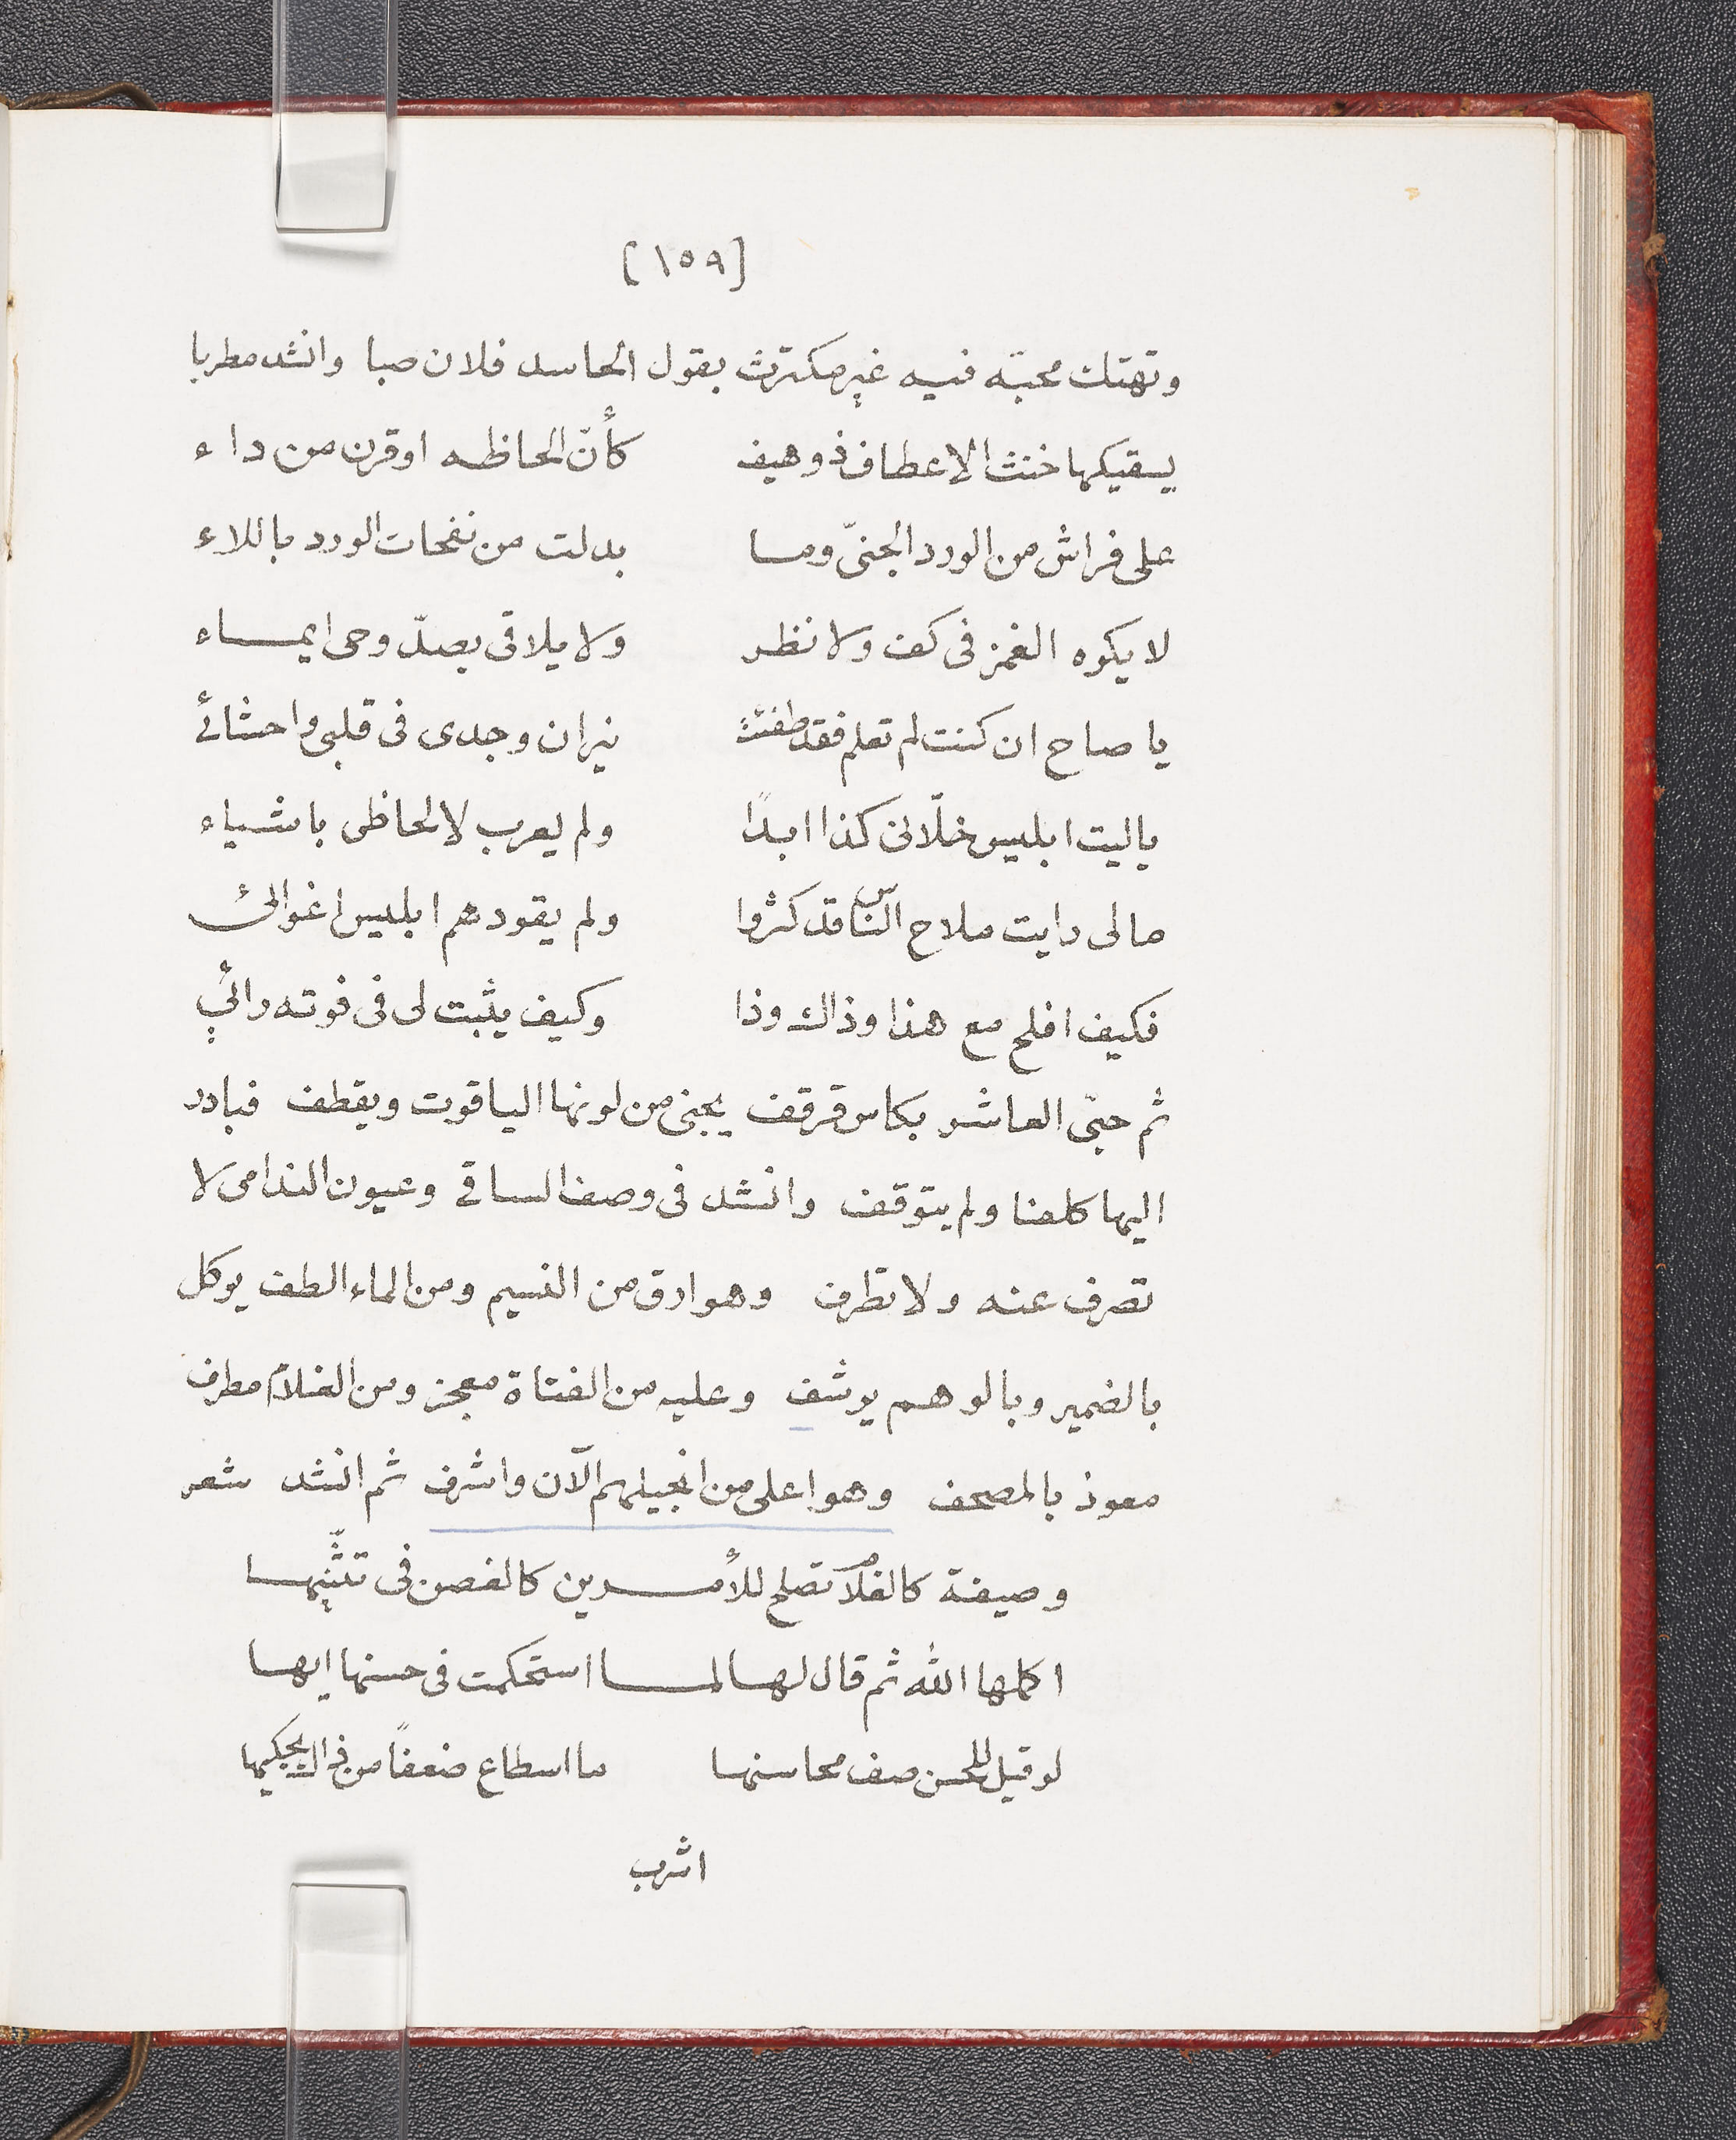 [١٥٩]
وتهتك محبّه فيه غير مكترث بقول الحاسد فلان صبا وانشد مطربا
يسقيكها خنث الاعطاف ذو هيف كأنّ الحاظه اوقرن من داء
على فراش من الورد الجنىّ وما بدلت من نفحات الورد باللاء
لا يكوه الغمز فى كف ولا نظر ولا يلاقى بصدّ وحى ايماء
يا صاح ان كنت لم تعلم فقد طفئت نيران وجدى فى قلبى واحشائى
ياليت ابليس خلّانى كذا ابدًا ولم يعرب لالحاظى باشياء
مالى رايت ملاح الناس قد كثروا ولم يقودهم ابليس اغوائى
فكيف افلح مع هذا وذاك وذا وكيف يثبت لى فى فوته رائي
ثم حبّى العاشر بكاس قرقف يجنى من لونها الياقوت ويقطف فبادر
اليها كلفنا ولم يتوقف وانشد فى وصف الساقى وعيون الندامى لا
تصرف عنه ولا تطرف وهو ارق من النسيم ومن الماء الطف يوكل
بالضمير وبالوهم يرشف وعليه من الفتاة معجز ومن الغلام مطرف
معوذ بالمصحف وهو اعلى من انجيلهم الآن واشرف ثم انشد شعر
وصيفة كالغلام تصلح للأمرين كالغصن فى تثنّيها
اكملها الله ثم قال لها لما استحكمت فى حسنها ايها
لو قيل للحسن صف محاسنها ما اسطاع ضعفًا من ذاك يحكيها
اشرب